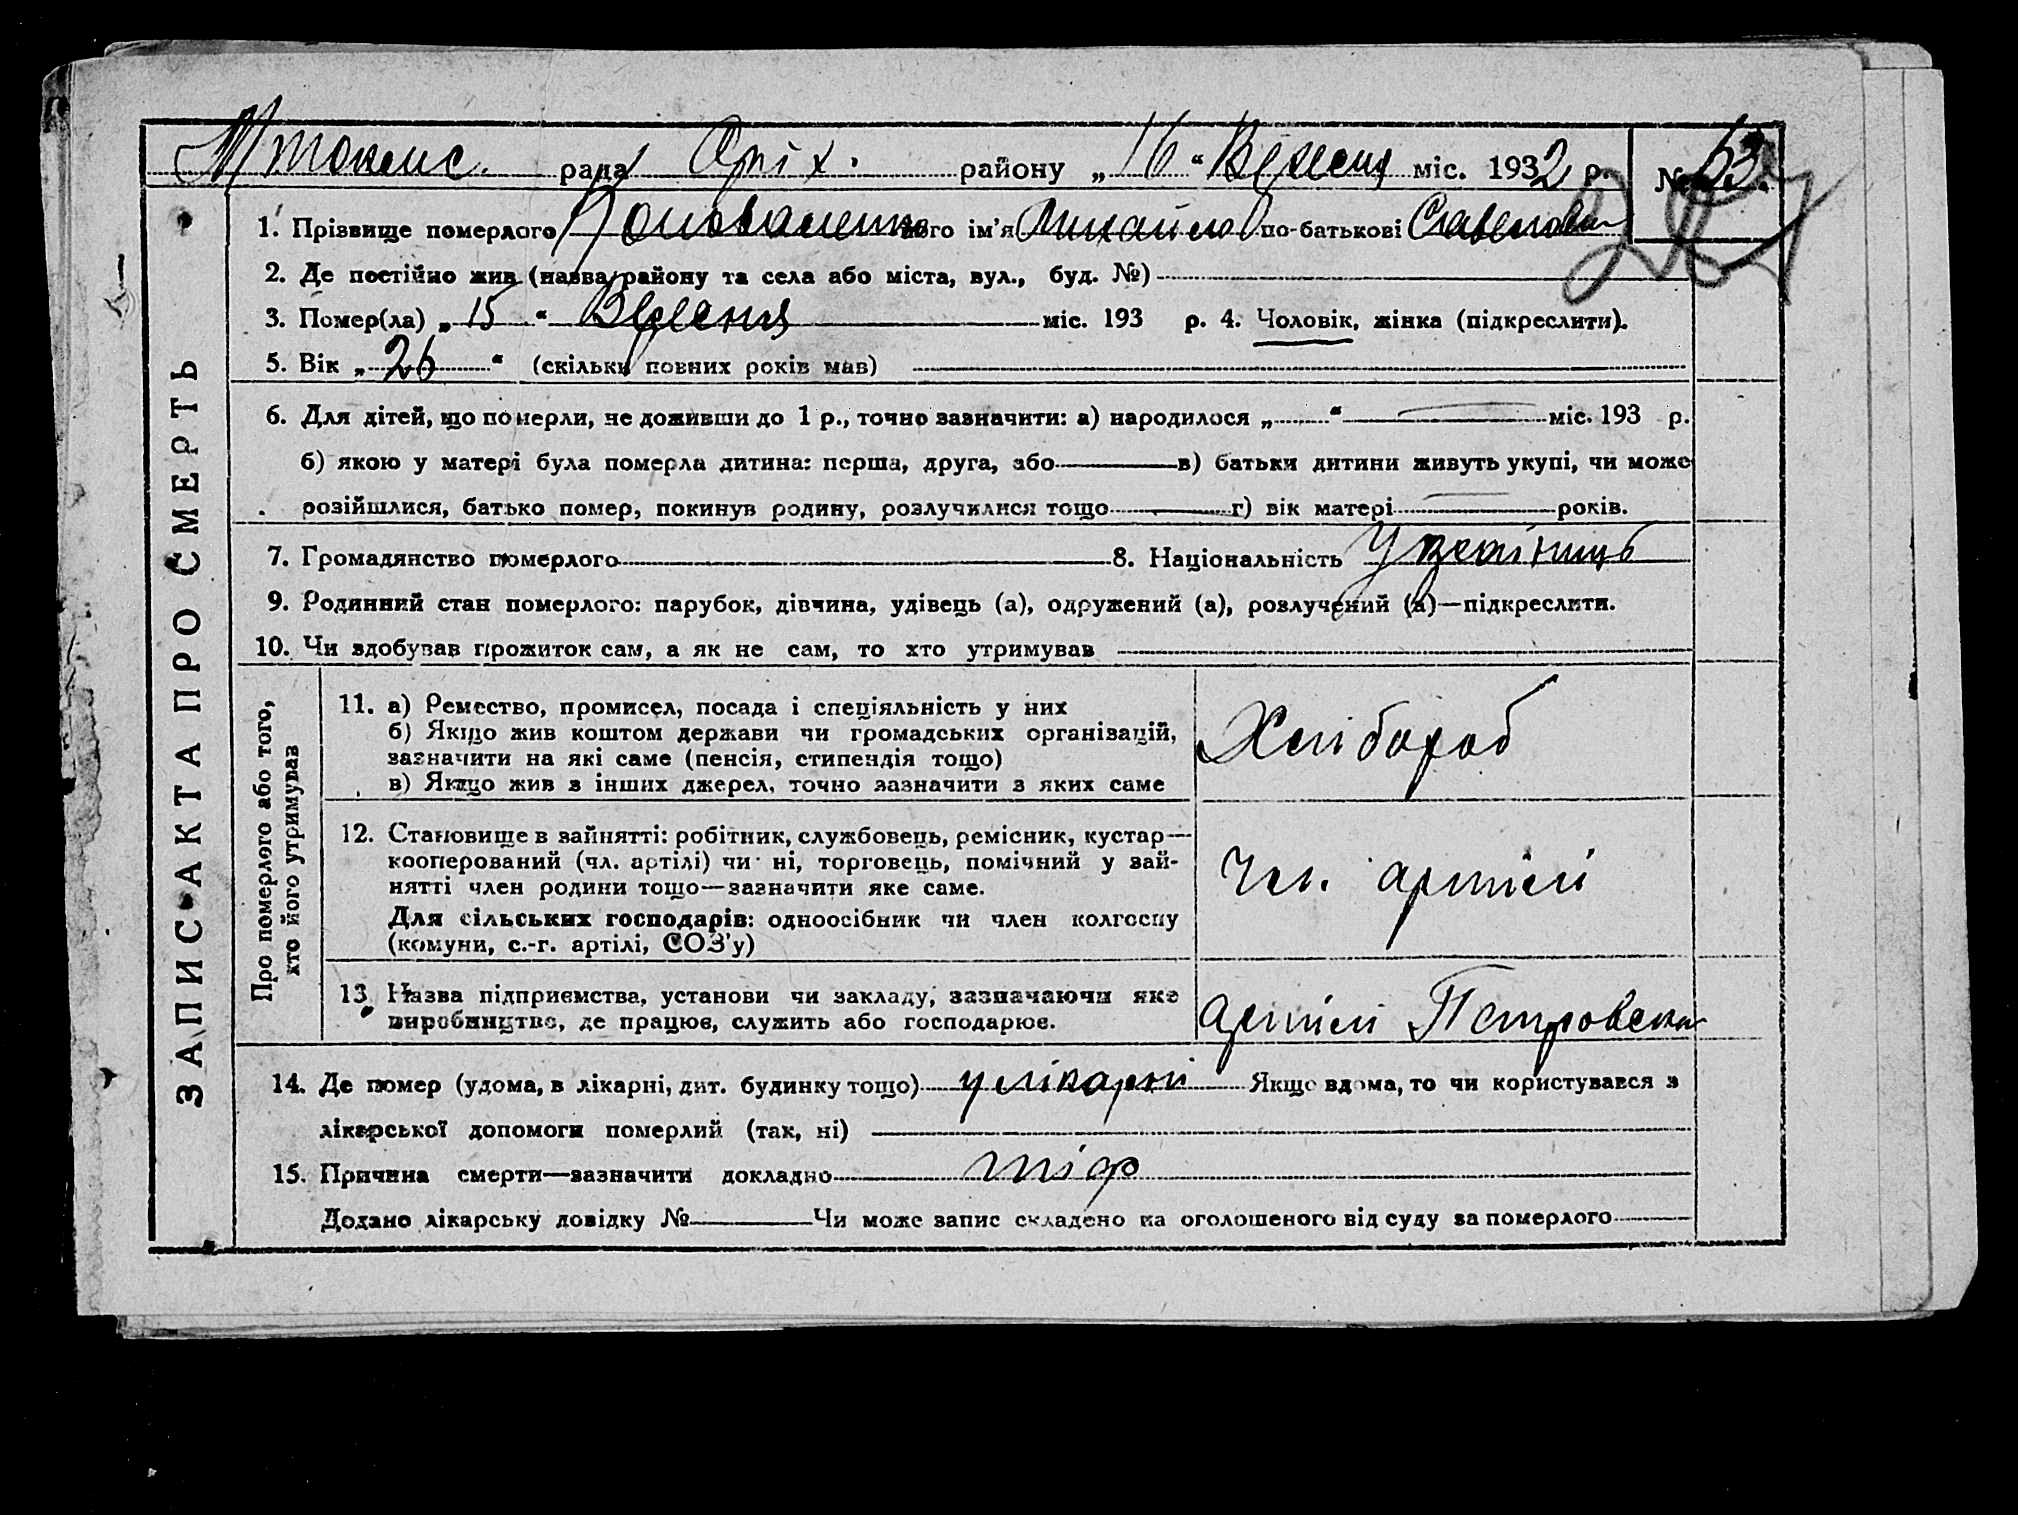 рада Оріх. району „16“ Вересня міс. 1932 р. № 63.
ЗАПИС АКТА ПРО СМЕРТЬ
1. Прізвище померлого його ім'я Михайло по-батькові
2. Де постійно жив (назва району та села або міста, вул., буд. №)
3. Помер(ла) „15“ Вересня міс. 193 р. 4. Чоловік, жінка (підкреслити).
5. Вік „26“ (скільки повних років мав)
6. Для дітей, що померли, не доживши до 1 р., точно зазначити: а) народилося „ “ міс. 193 р.
б) якою у матері була померла дитина: перша, друга, або в) батьки дитини живуть укупі, чи може
розійшлися, батько помер, покинув родину, розлучилися тощо г) вік матері років.
7. Громадянство померлого 8. Національність Українець
9. Родинний стан померлого: парубок, дівчина, удівець (а), одружений (а), розлучений (а)—підкреслити.
10. Чи здобував прожиток сам, а як не сам, то хто утримував
Про померлого або того,
хто його утримував
11. а) Ремество, промисел, посада і спеціяльність у них
б) Якщо жив коштом держави чи громадських організацій,
зазначити на які саме (пенсія, стипендія тощо)
в) Якщо жив з інших джерел, точно зазначити з яких саме
Хлібороб
12. Становище в зайнятті: робітник, службовець, ремісник, кустар—
кооперований (чл. артілі) чи ні, торговець, помічний у зай-
нятті член родини тощо—зазначити яке саме.
Для сільських господарів: одноосібник чи член колгоспу
(комуни, с.-г. артілі, СОЗ'у)
Чл. артілі
13. Назва підприємства, установи чи закладу, зазначаючи яке
виробництво, де працює, служить або господарює.
артілі Петровська
14. Де помер (удома, в лікарні, дит. будинку тощо) у лікарні Якщо вдома, то чи користувався з
лікарської допомоги померлий (так, ні)
15. Причина смерти—зазначити докладно тіф
Додано лікарську довідку № Чи може запис складено на оголошеного від суду за померлого